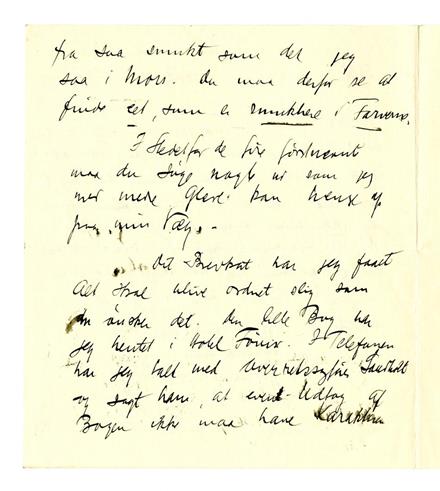 fra saa smukt som det jeg
saa i Mors. Du maa derfor se at
finde et, som er smukkere i Farverne.
I Stedet for de fire førstnævnt
maa du søge nogle ud som jeg
med mere Glæde kan hænge op
paa min Væg. -
Dit Brevkort har jeg faaet
Alt skal blive ordnet slig som
du ønsker det. Den lille Bog har
jeg hentet i Hotel Fönix. I Telefonen
har jeg talt med
og sagt ham, at event. Udtog af
Bogen ikke maa have Karakteren